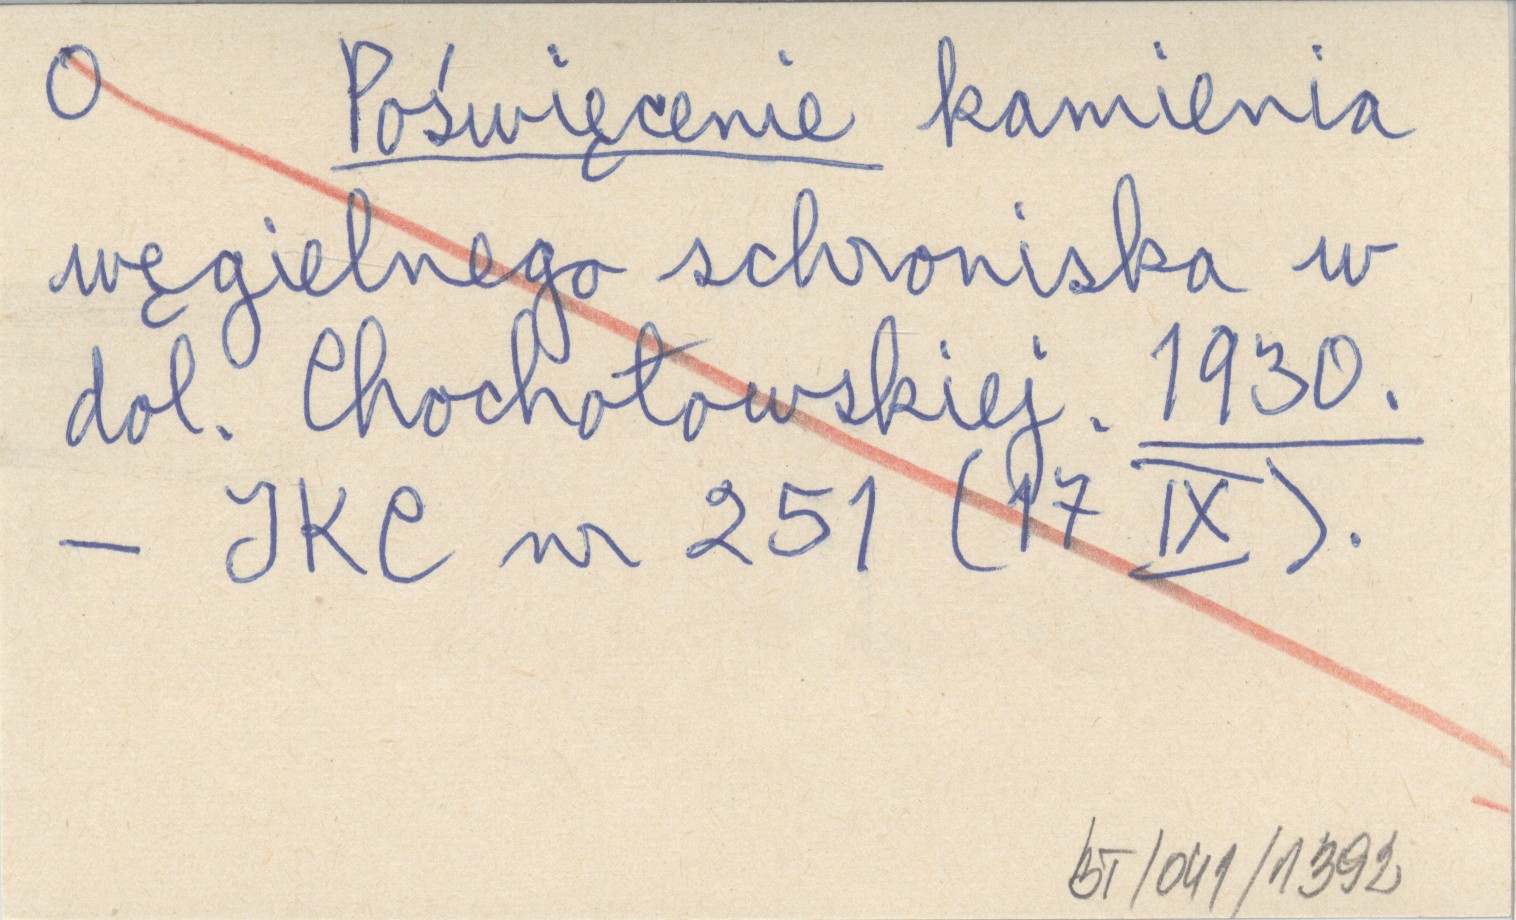 O Poświęcenie kamienia
węgielnego schroniska w
dol. Chochołowskiej. 1930.
— IKC nr 251 (17 IX).
BT/041/1392